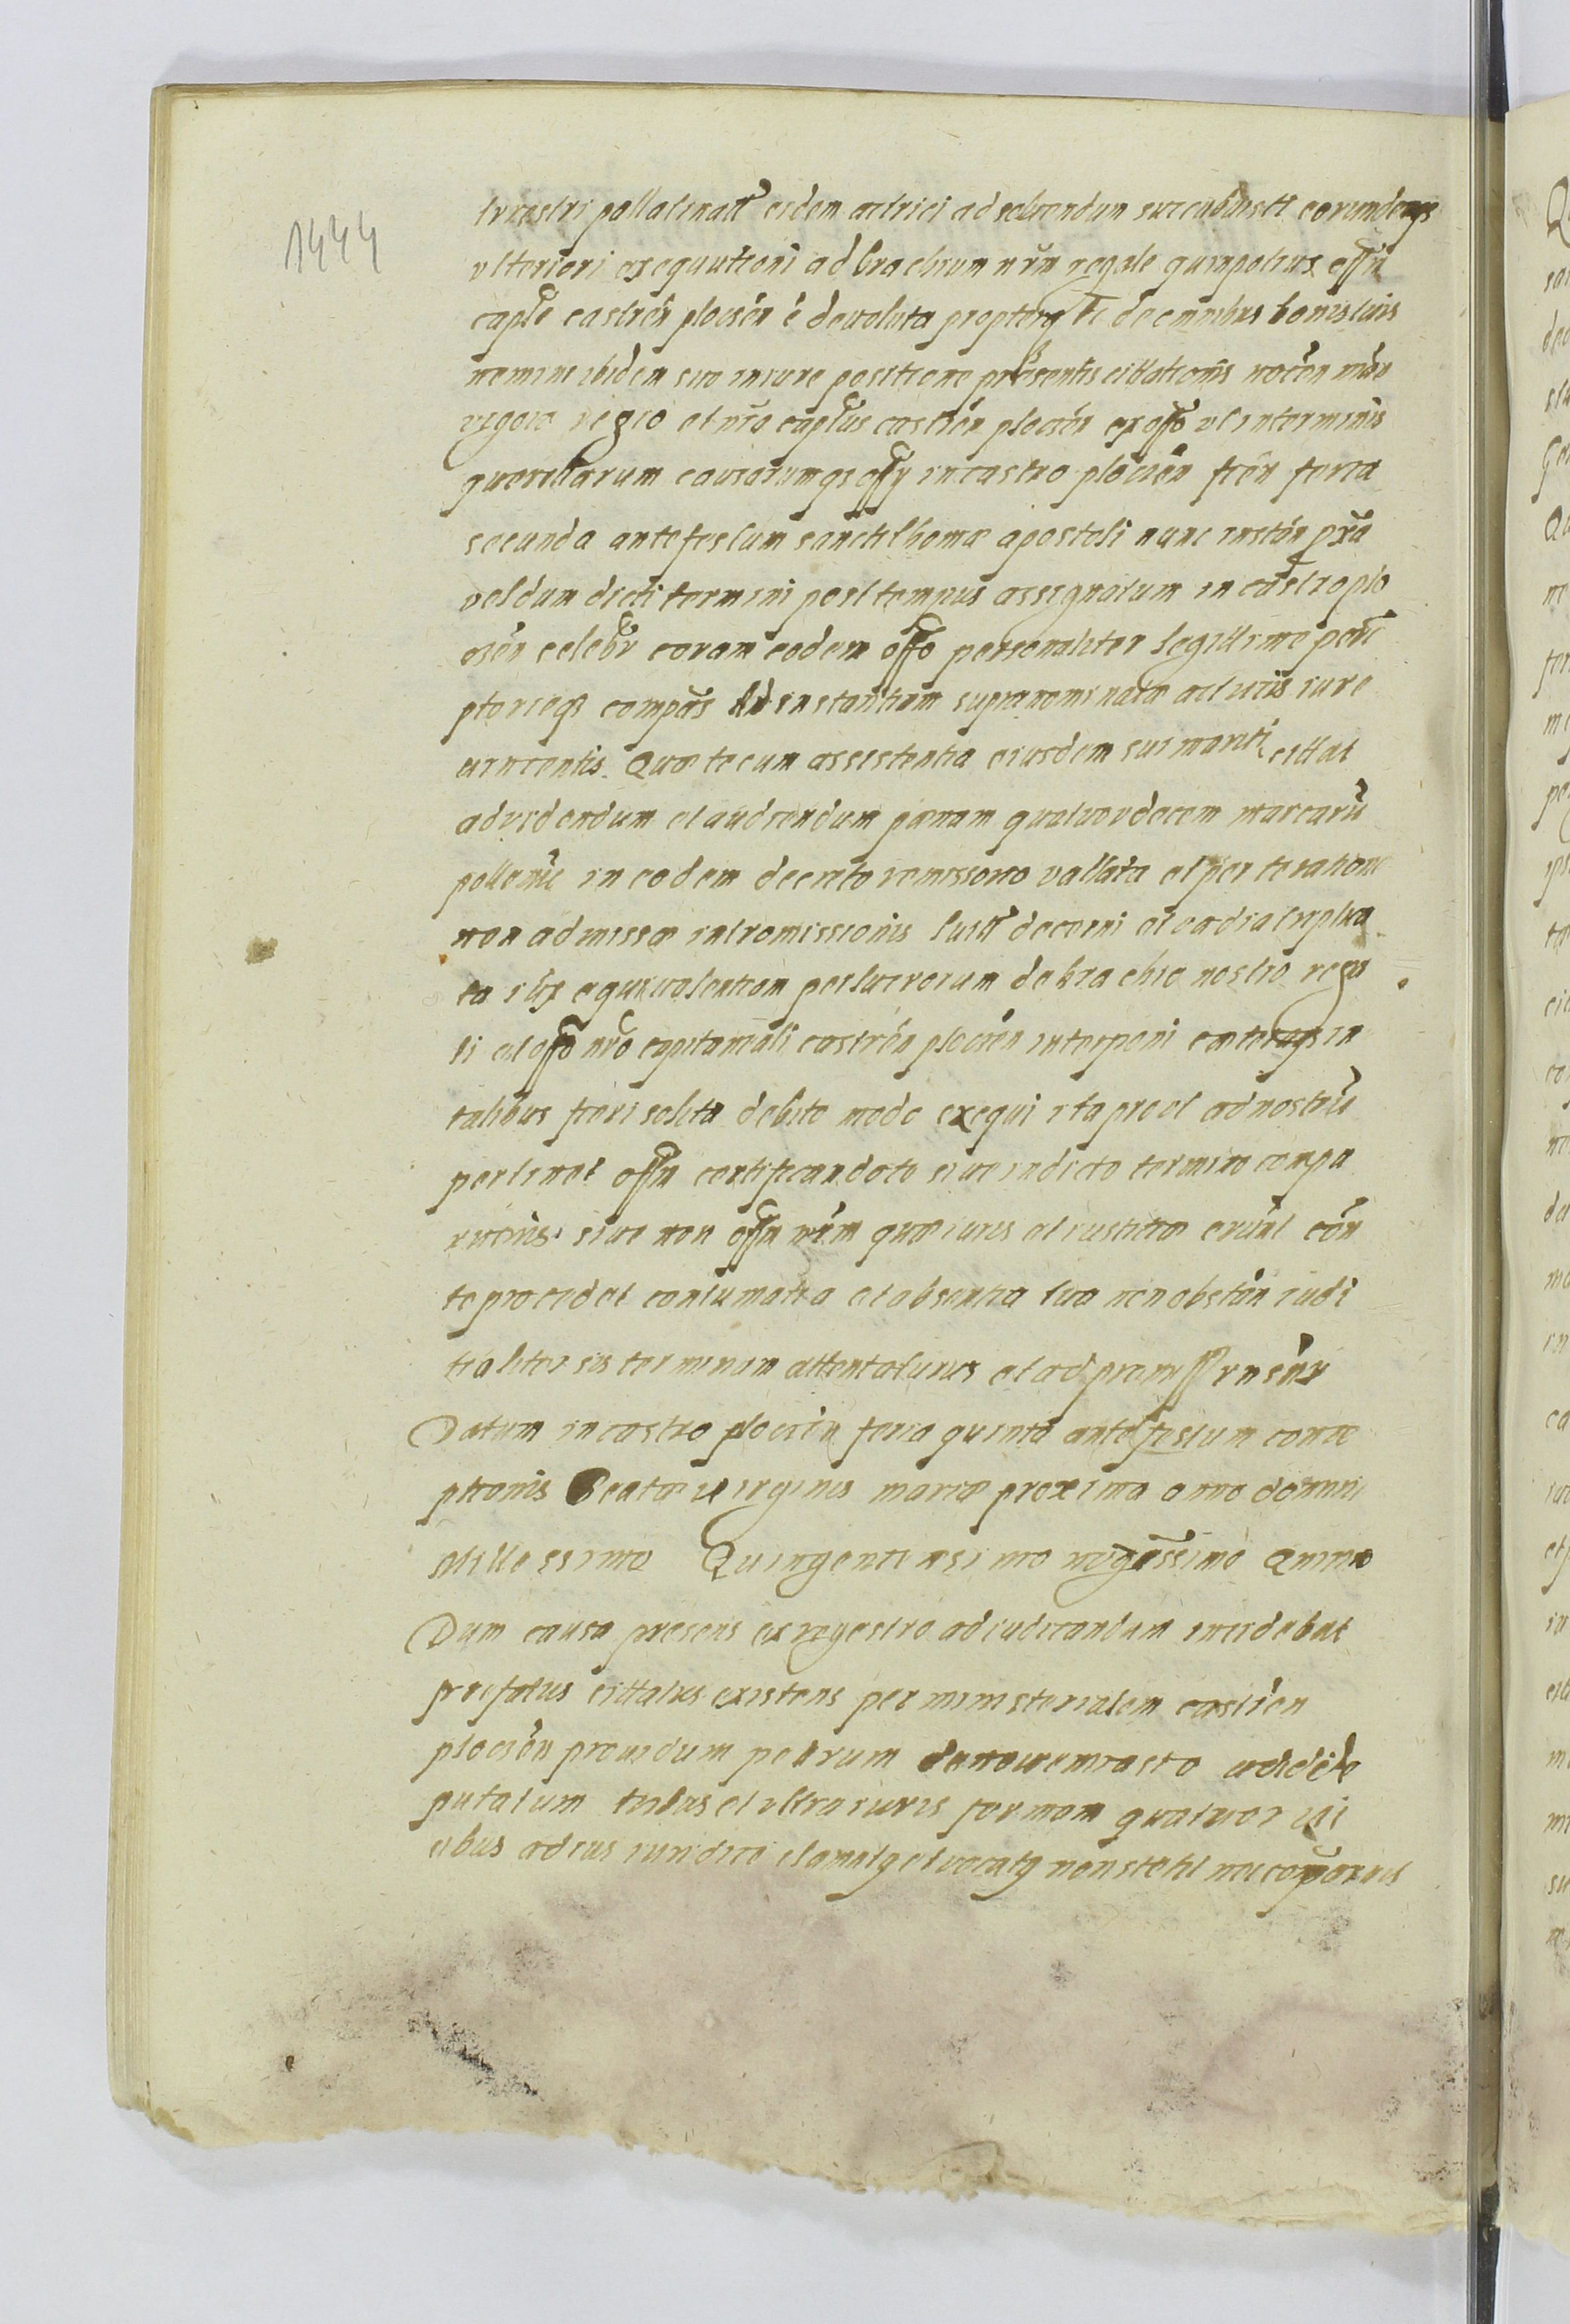 1444
terrestri pallatinatt eidem actrici ad solvendum succubuisti eorundemqs
ulteriori exequutioni ad brachium nrum regale quinpotius offm
caple castren plocsen e devoluta propterq te de omnibus bonis tuis
nemini ibidem sive in iure positione praesentis cittationis
vigore regio et nra caplus castren plocsen ex offo ut in terminis
querellarum causarumqs offy in castro plocsen fien feria
secunda ante festum sancti thomae apostoli nunc instan pxa
vel dum dicti termini post tempus assignatum in castro plo
csen celebr coram eodem offo personaliter legittime perem
ptorieqs compas Ad instantiam supranominatae actricis iure
vincentis. Quae te cum assistentia eiusdem sui mariti cittat
ad videndum et audiendum paenam quatuordecem marcaru
in eodem decreto remissorio vallata et per te ratione
non admissae intromissionis luitt decerni et vadia triplica
ta aequivalentiam perlucrorum de brachio nostro rega
li et offo nro capitaneali castren plocsen interponi caeteraqs in
talibus fieri solita debito modo exequi ita prout ad nostru
pertinet offm certificando te sive in dicto termino compa
rueris sive non offm nrum quae iuris et iustitiae erunt con
te procedet contumatia et absentia tua non obstan iudi
tialiter sis terminum attentaturus et ad premiss rnsur
Datum in castro plocsen feria quinta ante festum conce
ptionis Beatae virginis mariae proxima anno domini
Millessimo Quingentiesimo
Dum causa presens ex regestro ad iudicandum incidebat
praefatus cittatus existens per ministerialem castren
plocsen providum petrum
putatum tribus et ultra iuris formam quatuor vi
cibus ad ius iuridice clamatq et vocatq non stetit nec comparuis